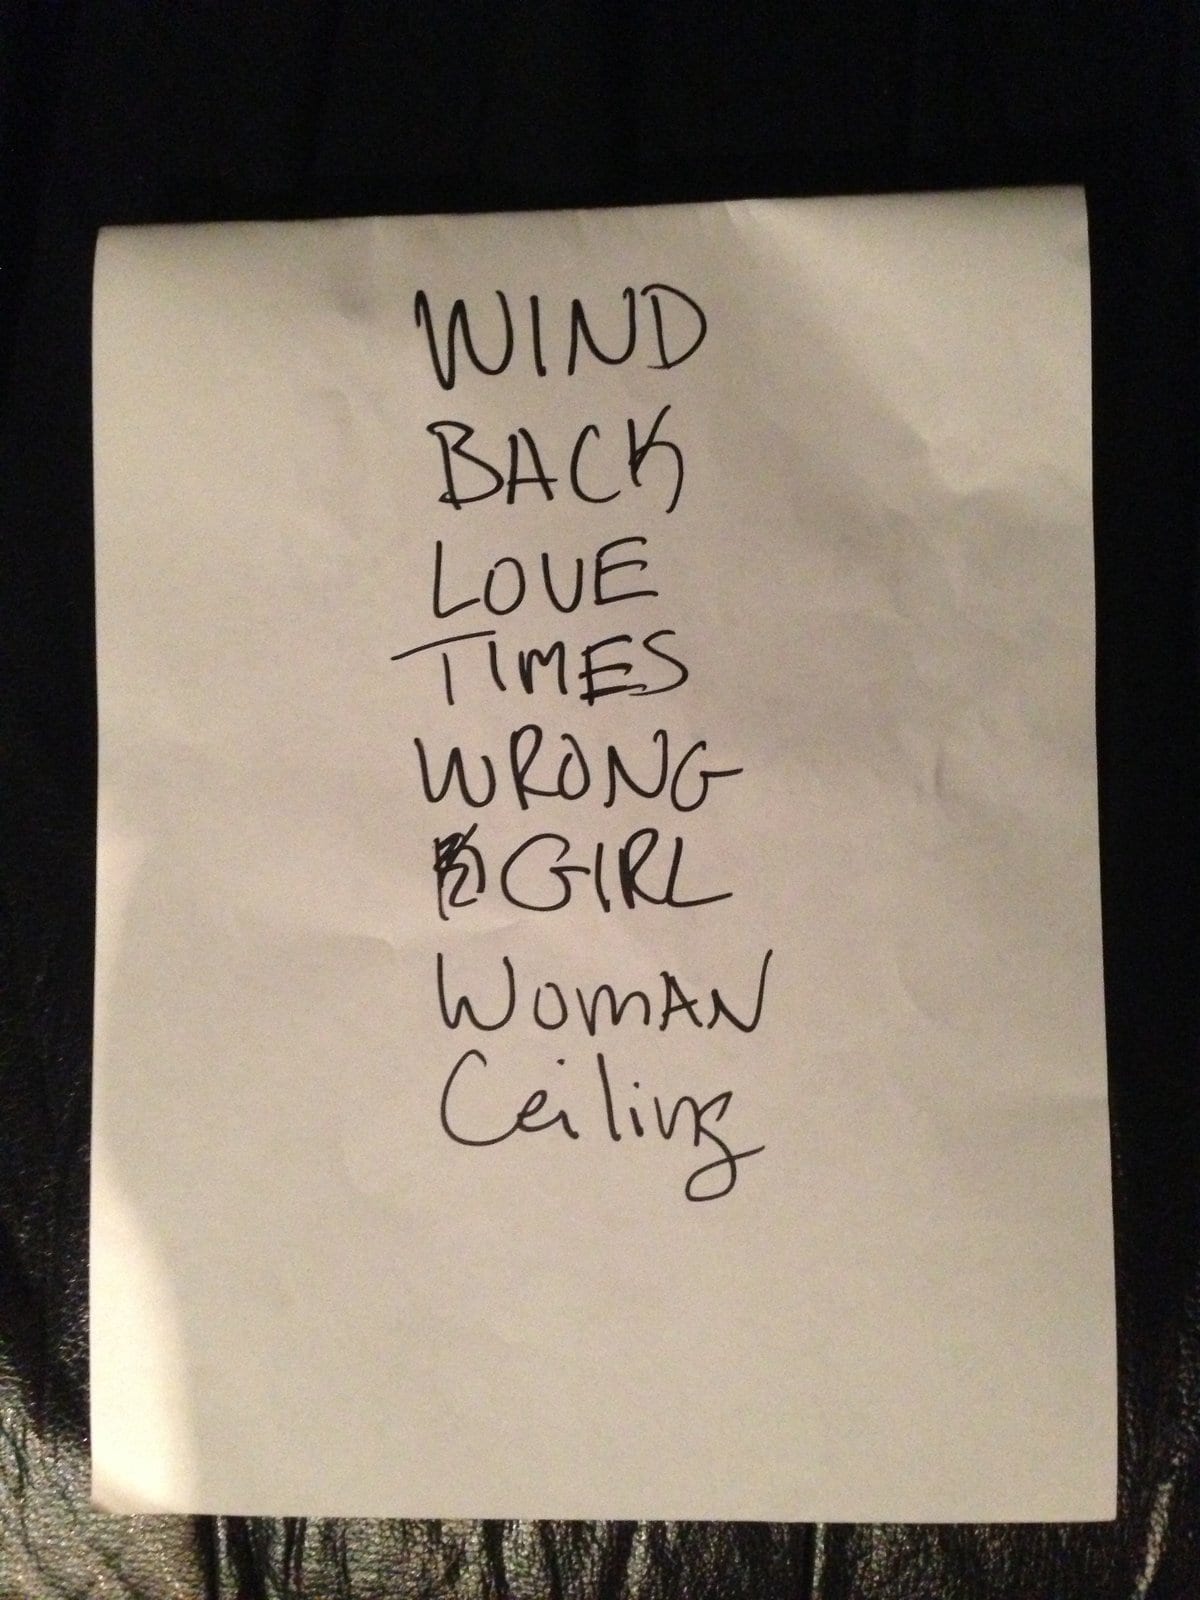 WIND
BACK
LOVE
TIMES
WRONG
GIRL
WOMAN
Ceiling